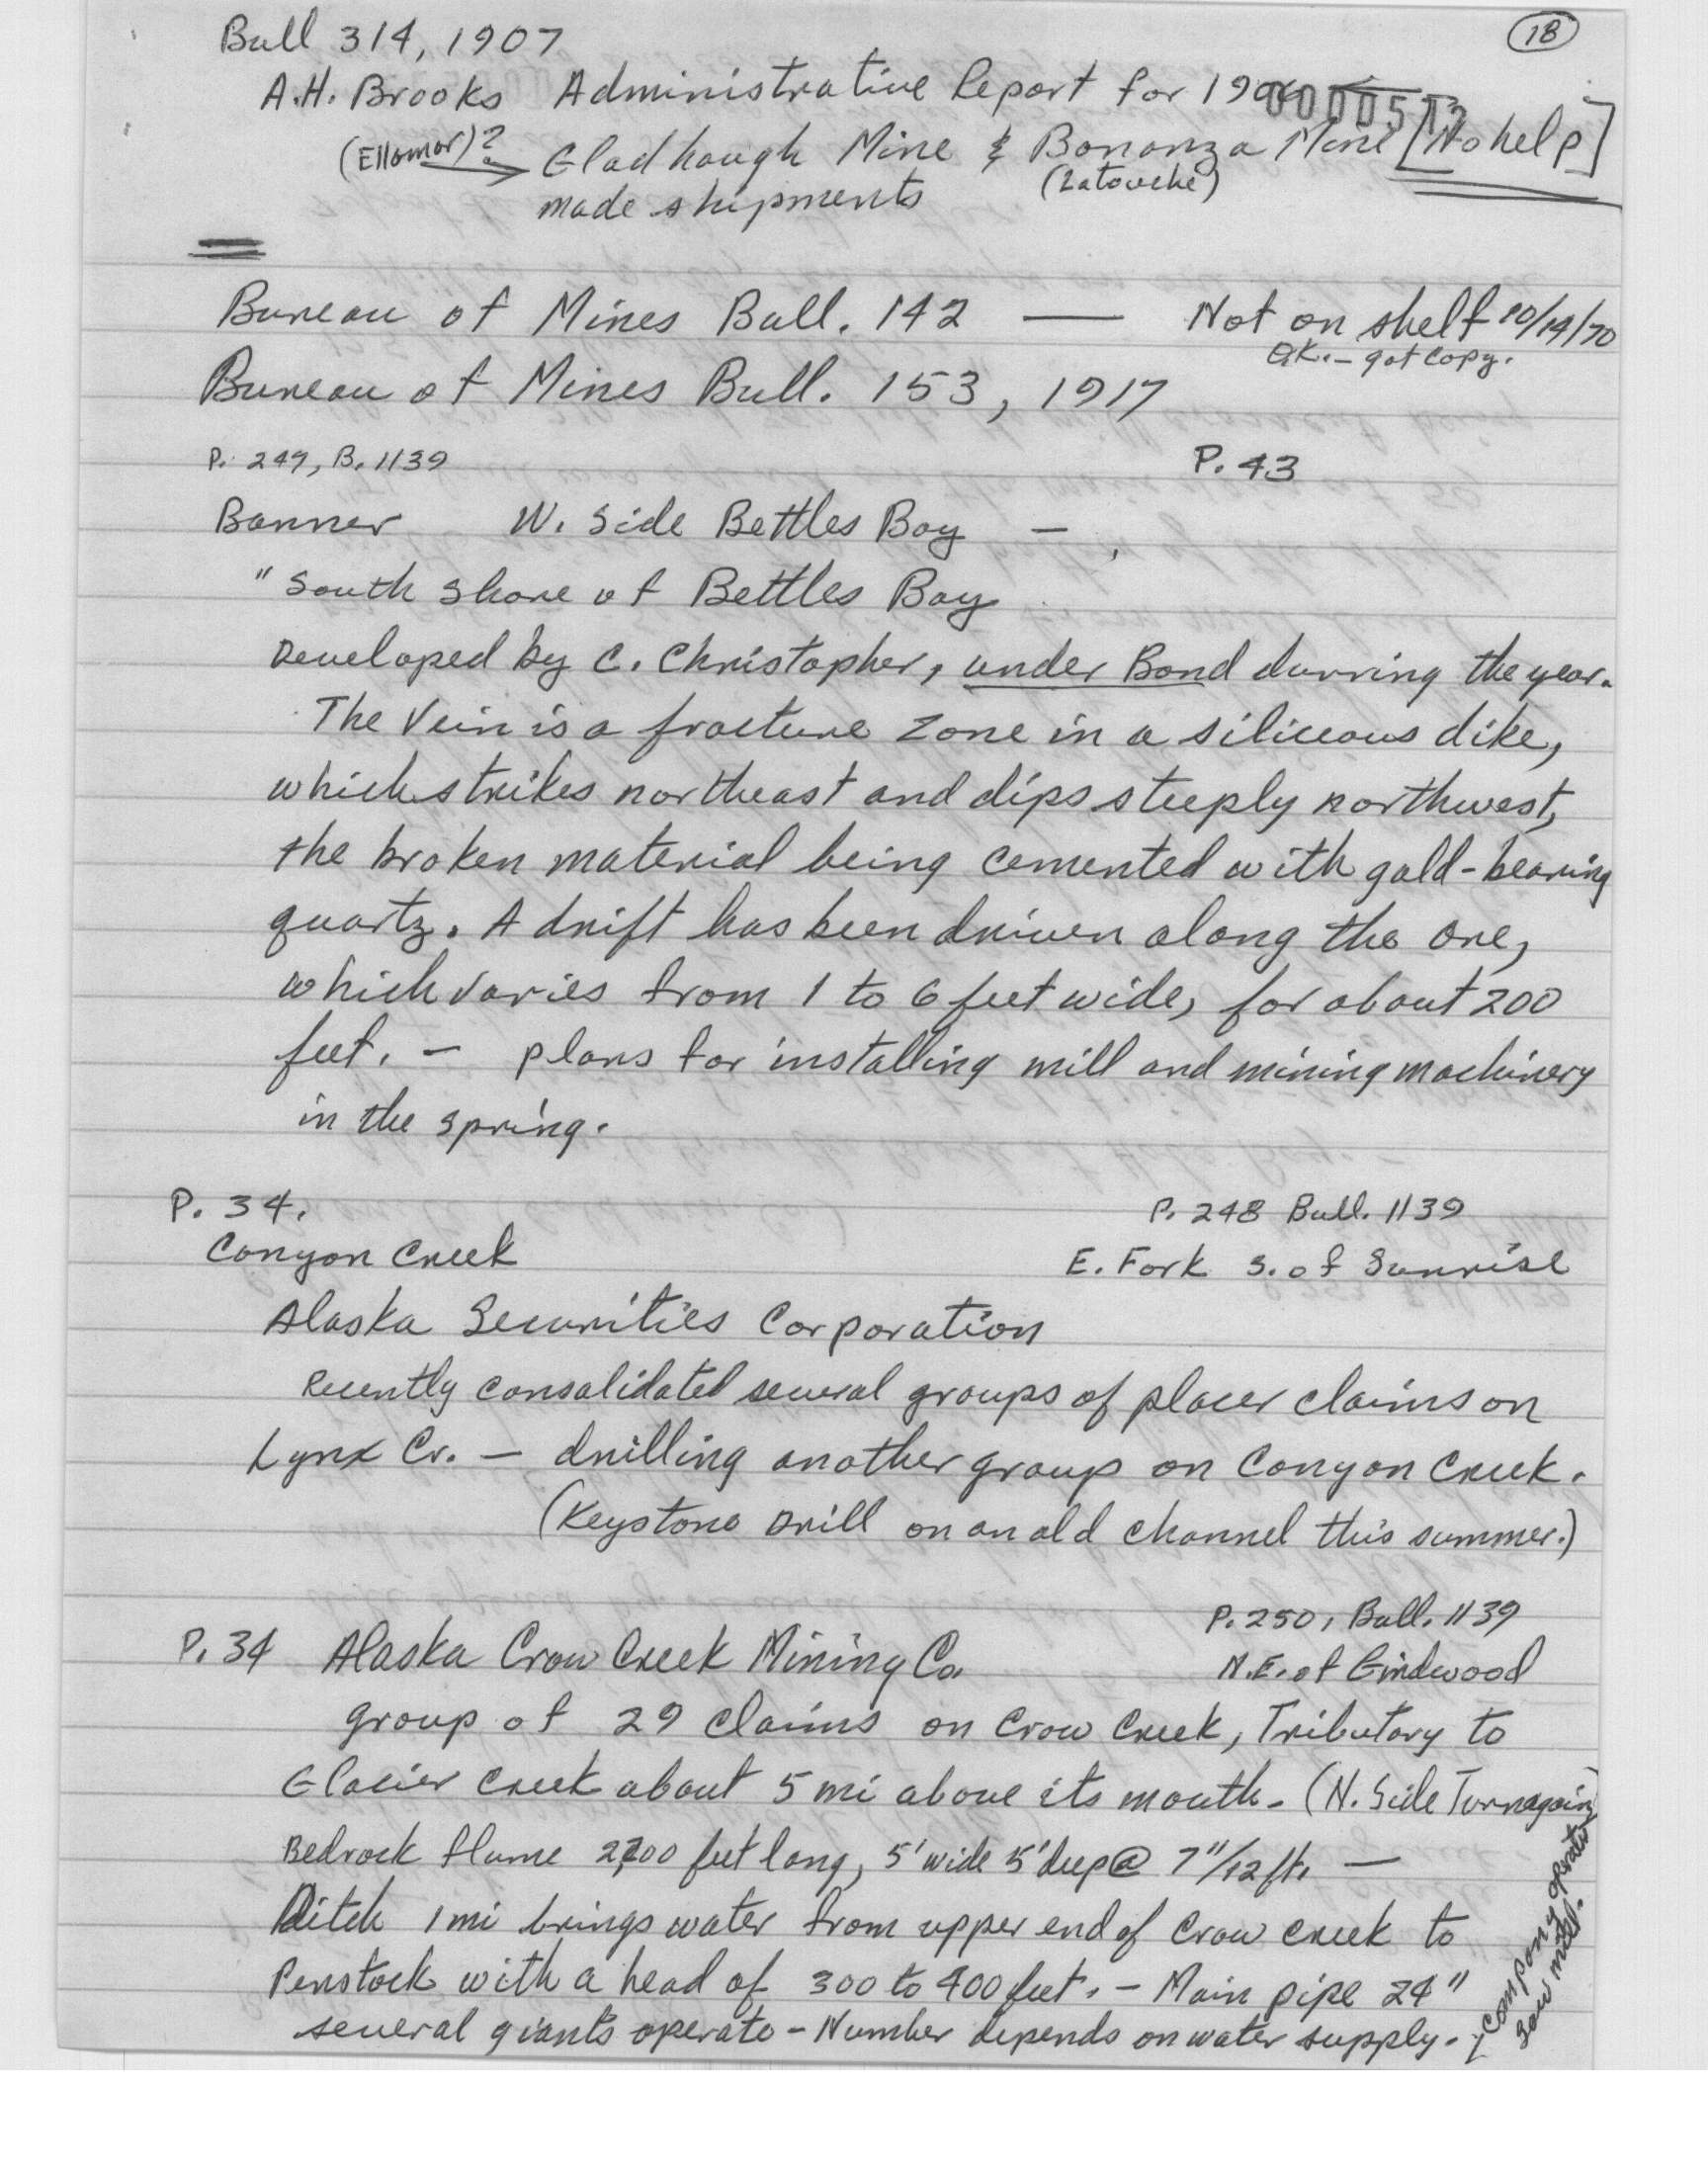 18
Bull 314, 1907
A.H. Brooks Administrative Report for
(Ellamar)? Gladhaugh Mine & Bonanza Mine [No help]
made shipments (Latouche)
Bureau of Mines Bull. 142 — Not on shelf 10/14/70
O.K. - got copy.
Bureau of Mines Bull. 153, 1917
P. 249, B. 1139 P. 43
Banner W. Side Bettles Bay - ,
"South Shore of Bettles Bay
Developed by C. Christopher, under Bond durring the year.
The Vein is a fracture zone in a siliceous dike,
which strikes northeast and dips steeply northwest,
the broken material being cemented with gold-bearing
quartz. A drift has been driven along the ore,
which varies from 1 to 6 feet wide, for about 200
feet. - plans for installing mill and mining machinery
in the spring.
P. 34. P. 248 Bull. 1139
Canyon Creek E. Fork S. of Sunrise
Alaska Securities Corporation
Recently consolidated several groups of placer claims on
Lynx Cr. - drilling another group on Canyon Creek.
(Keystone Drill on an old channel this summer.)
P. 250, Bull. 1139
P. 34 Alaska Crow Creek Mining Co. N.E. of Girdwood
group of 29 claims on Crow Creek, Tributary to
Glacier Creek about 5 mi above its mouth - (N. Side Turnagain)
Bedrock flume feet long, 5' wide 5' deep @ 7"/12 ft. —
Ditch 1 mi brings water from upper end of Crow Creek to
Penstock with a head of 300 to 400 feet. - Main pipe 24"
several giants operate - Number depends on water supply.
Company operates
Saw mill.